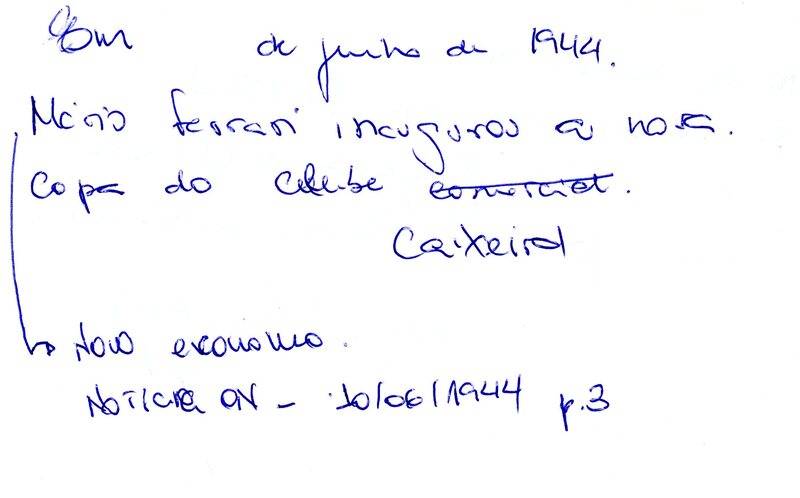 Em de junho de 1944.
Mário Ferrari inaugurou a nova.
Copa do Clube comercial.
Caixeiral
Novo economo.
NOTÍCIA ON - 10/06/1944 p.3